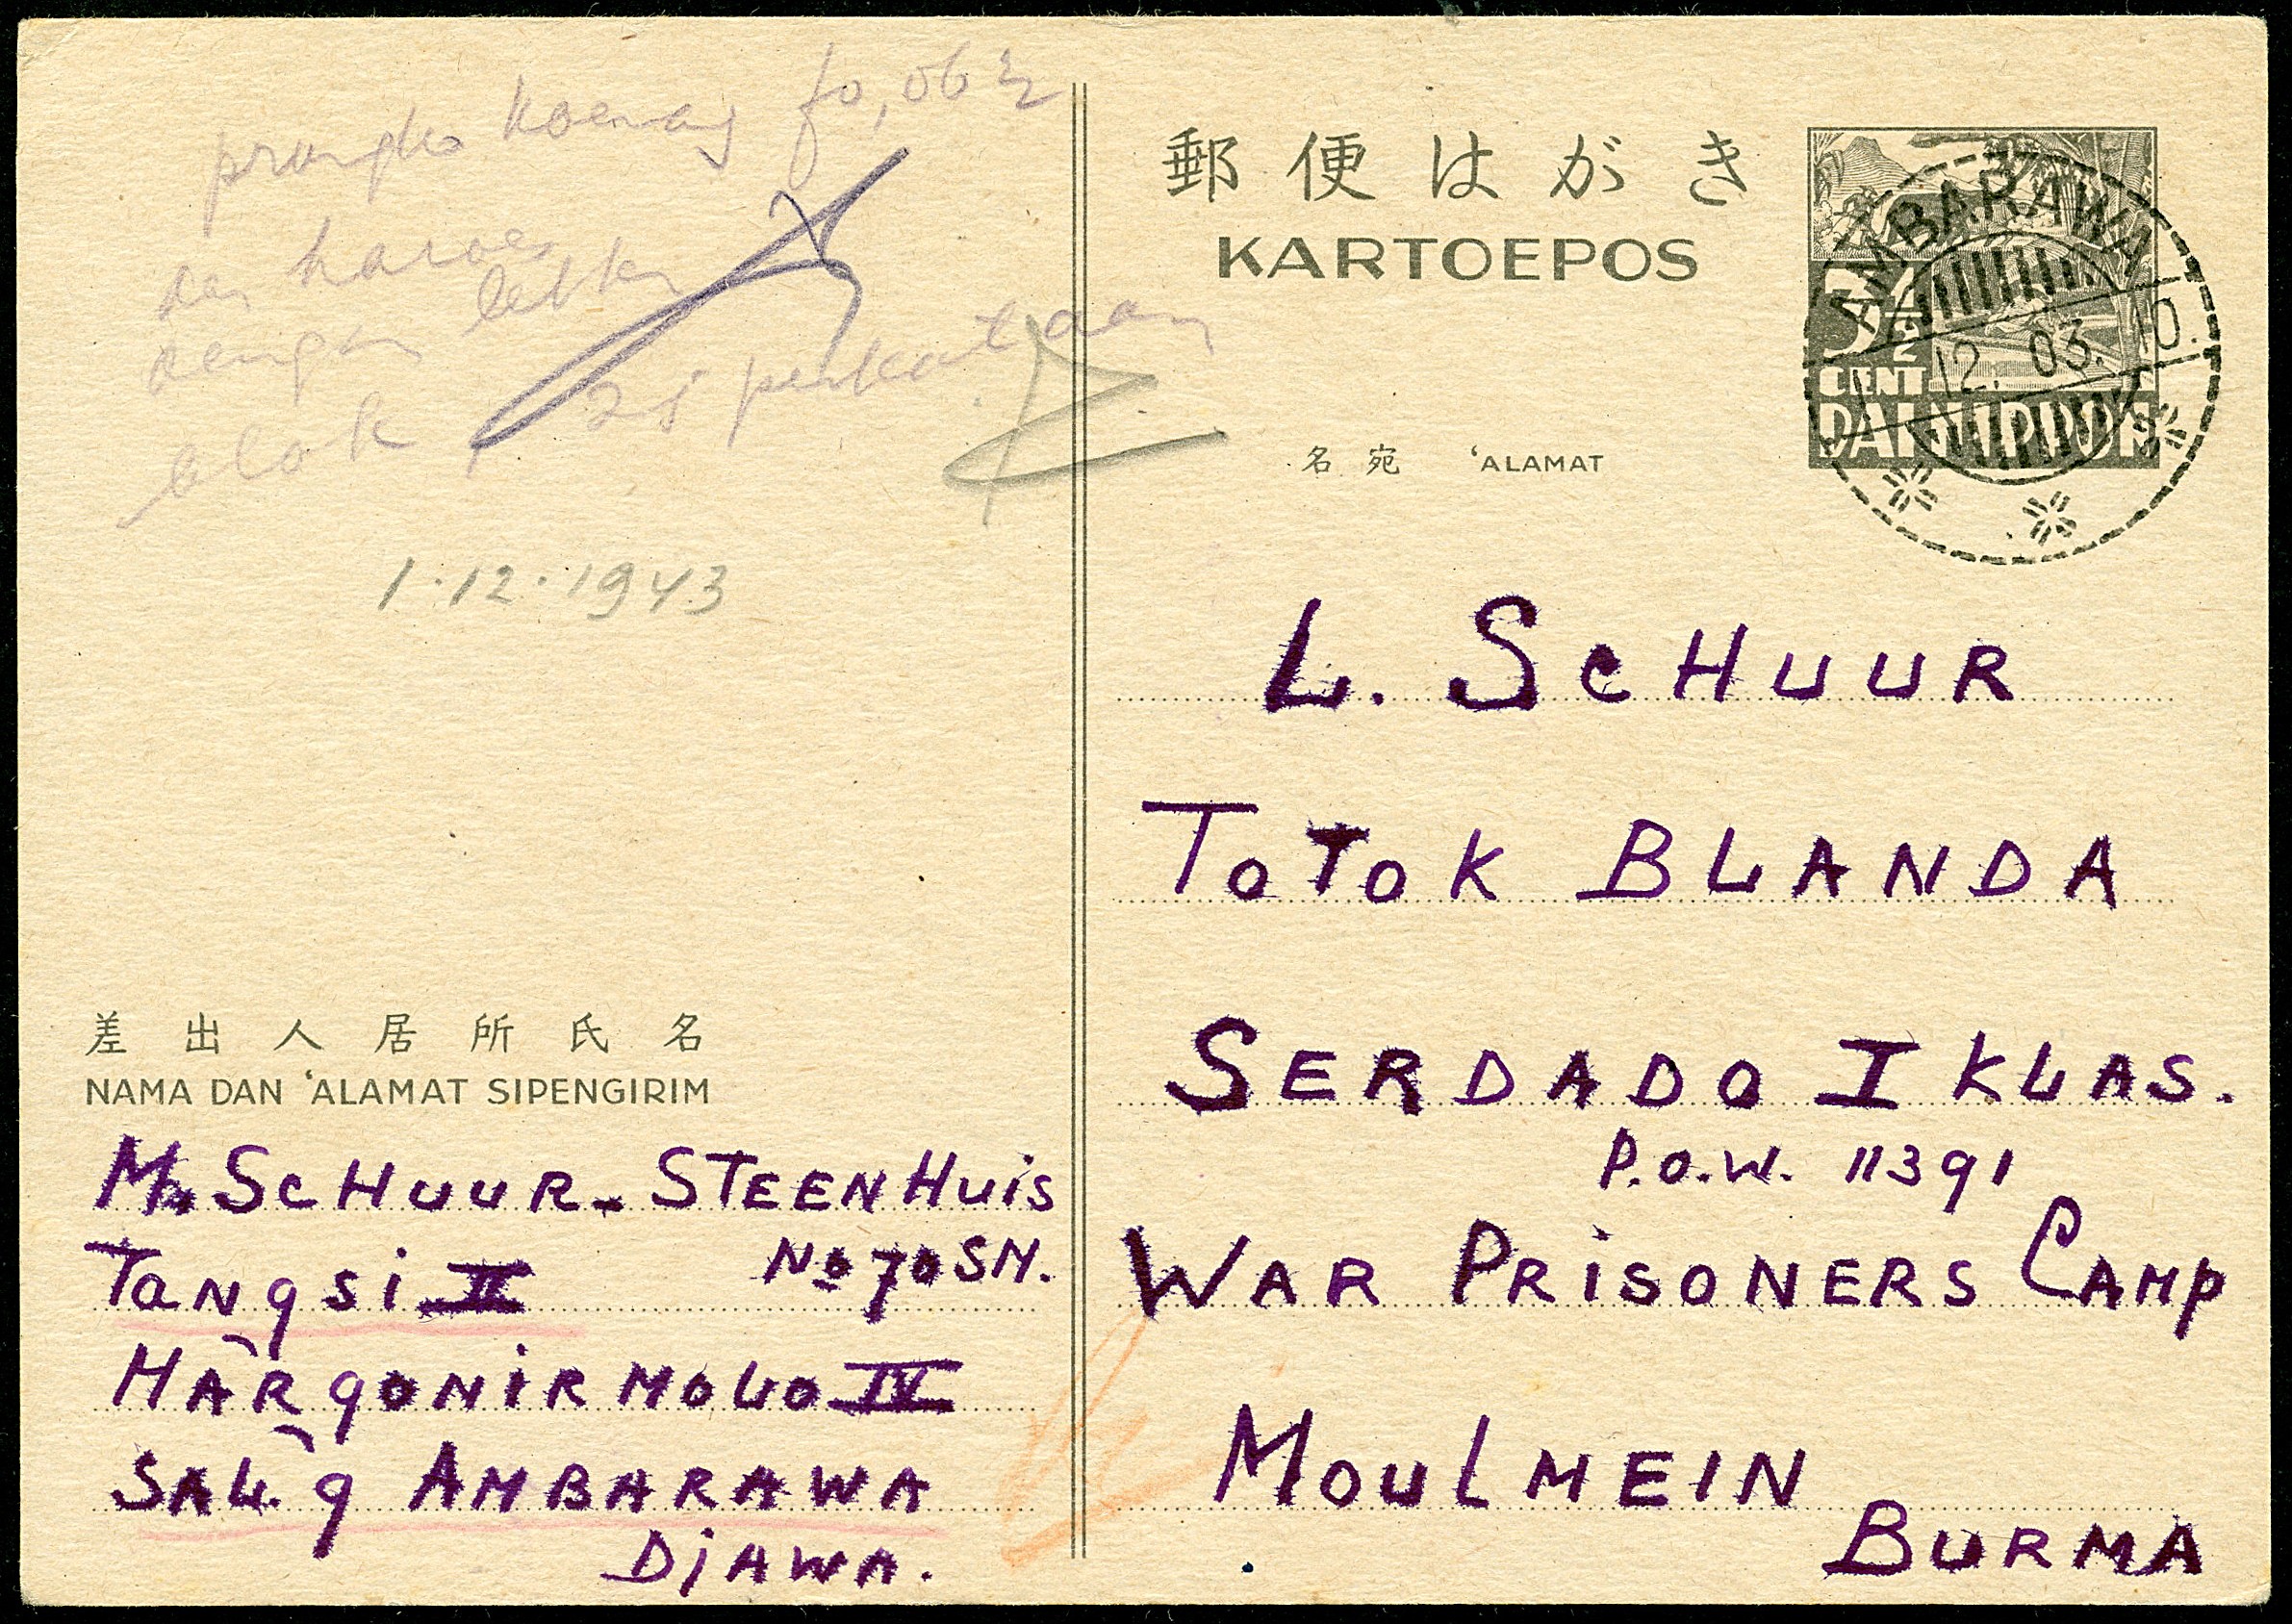 prangko koerang f0,06½
dan haroes
dengan letter
blok 25 perkataan
1.12.1943
郵便はがき
KARTOEPOS
名宛 'ALAMAT
3½
CENT
DAI NIPPON
AMBARAWA
12.03.10.
L. ScHUUR
ToToK BLANDA
SERDADO I KLAS.
P.O.W. 11391
WAR PRiSONERS CAMP
MOULMEIN
BURMA
差出人居所氏名
NAMA DAN 'ALAMAT SIPENGIRIM
M. ScHUUR-STEENHuis
TaNgsi II No 70 SM.
HARgONiRMOLO IV
SAL. 9 AMBARAWA
DjAWA.